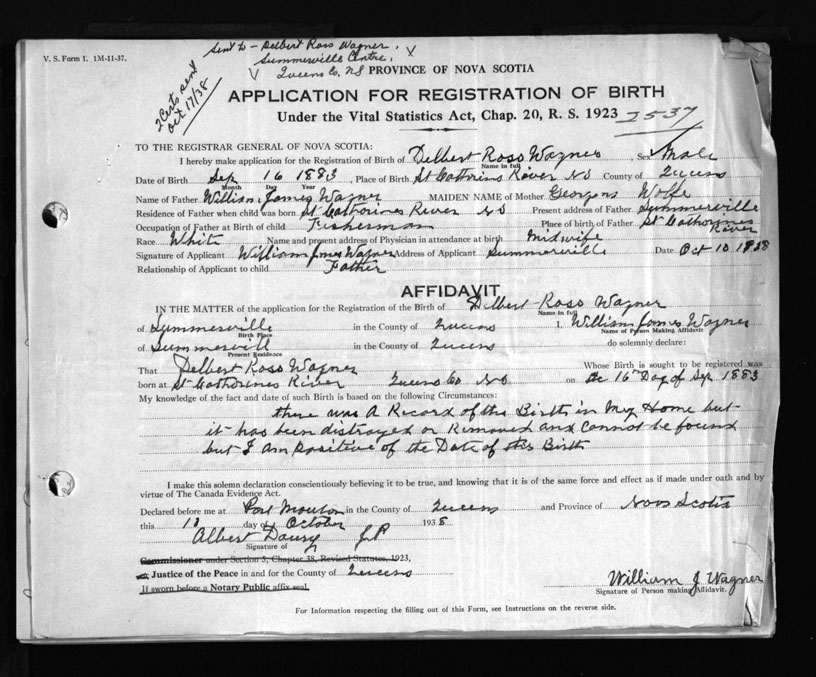 V. S. Form I. 1M-11-37.
Sent to - Delbert Ross Wagner.
Summersville Centre,
Queens Co, NS
2 Certs sent
Oct 17/38
PROVINCE OF NOVA SCOTIA
APPLICATION FOR REGISTRATION OF BIRTH
Under the Vital Statistics Act, Chap. 20, R. S. 1923
2537
TO THE REGISTRAR GENERAL OF NOVA SCOTIA:
I hereby make application for the Registration of Birth of Delbert Ross Wagner, Sex Male
Name in full
Date of Birth Sep 16 1883, Place of Birth St Catherins River NS County of Queens
Month Day Year
Name of Father William James Wagner MAIDEN NAME of Mother Wolfe
Residence of Father when child was born St Cathourines River NS Present address of Father Summerville
Occupation of Father at Birth of child Fisherman Place of birth of Father St Cathourines River
Race White Name and present address of Physician in attendance at birth Midwife
Signature of Applicant William James Wagner Address of Applicant Summerville Date Oct 10 1938
Relationship of Applicant to child Father
AFFIDAVIT
IN THE MATTER of the application for the Registration of the Birth of Delbert Ross Wagner
Name in full
of Summersville in the County of Queens I, William James Wagner
Birth Place Name of Person Making Affidavit
of Summervill in the County of Queens do solemnly declare:
Present Residence
That Delbert Ross Wagner Whose Birth is sought to be registered was
born at St Cathourines River Queens Co NS on the 16th Day of Sep 1883
My knowledge of the fact and date of such Birth is based on the following Circumstances:
there was A Record of this Birth in My Home but
it has been distroyed or Removed and cannot be found
but I am positive of the Date of this Birth
I make this solemn declaration conscientiously believing it to be true, and knowing that it is of the same force and effect as if made under oath and by
virtue of The Canada Evidence Act.
Declared before me at Port Mouton in the County of Queens and Province of Nova Scotia
this 10 day of October 1938
Albert Doury JP
Signature of
Commissioner under Section 5, Chapter 38, Revised Statutes, 1923,
or Justice of the Peace in and for the County of Queens
If sworn before a Notary Public affix seal.
William J Wagner
Signature of Person making Affidavit.
For Information respecting the filling out of this Form, see Instructions on the reverse side.